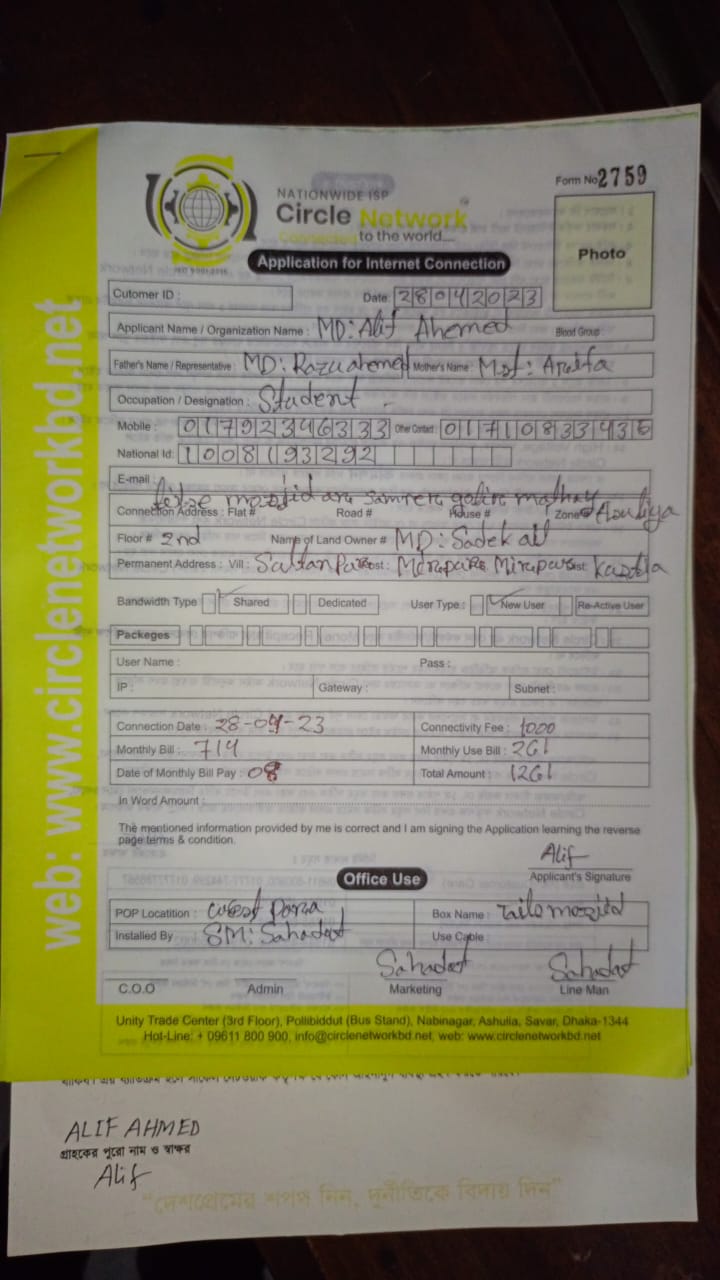 Form No 2759
NATIONWIDE ISP
Circle Network
Connected to the world....
ISO 9001:2015
Photo
Application for Internet Connection
Cutomer ID :
Date: 28042023
Applicant Name / Organization Name : MD: Alif Ahemed Blood Group :
Father's Name / Representative : MD: Razu ahemed Mother's Name : Mst:
Occupation / Designation : Student
Mobile : 01792346333 Other Contact : 0171083343
National Id: 1008193292
E-mail :
mosjid
Connection Address : Flat # Road # House # Zone # Asuliya
Floor # 2nd Name of Land Owner # MD: Sadek ali
Permanent Address : Vill : SultanPara Post : Dist :
Bandwidth Type Shared Dedicated User Type : New User Re-Active User
Packeges
User Name : Pass :
IP : Gateway : Subnet :
Connection Date : 28-04-23 Connectivity Fee : 1000
Monthly Bill : 714 Monthly Use Bill : 261
Date of Monthly Bill Pay : 08 Total Amount : 1261
In Word Amount :
The mentioned information provided by me is correct and I am signing the Application learning the reverse
page terms & condition.
Alif
Applicant's Signature
Office Use
POP Locatition : West Para Box Name : mosjid
Installed By SM: Sahadat Use Cable :
Sahadat Sahadat
C.O.O Admin Marketing Line Man
Unity Trade Center (3rd Floor), Pollibiddut (Bus Stand), Nabinagar, Ashulia, Savar, Dhaka-1344
Hot-Line: + 09611 800 900, info@circlenetworkbd.net, web: www.circlenetworkbd.net
web: www.circlenetworkbd.net
ALIF AHMED
গ্রাহকের পুরো নাম ও স্বাক্ষর
Alif
“দেশপ্রেমের শপথ নিন, দুর্নীতিকে বিদায় দিন”